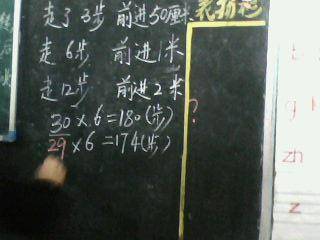 走了3步 前进50厘米
走6步 前进1米
走12步 前进2米
30×6=180(步)
29×6=174(步)
?
表扬栏
g
zh
z